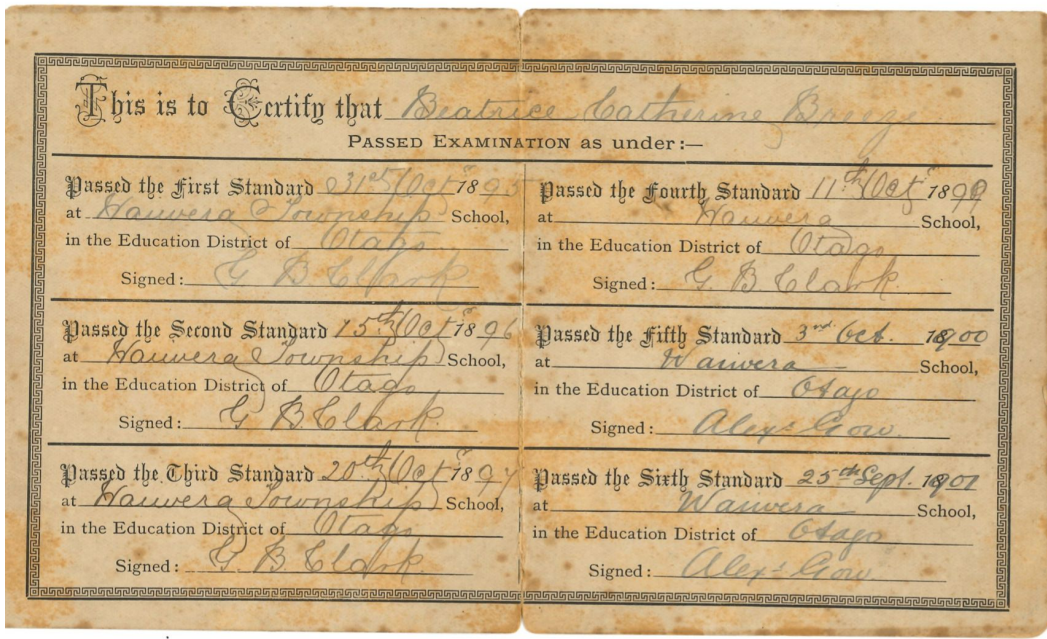 This is to Certify that Beatrice Catherine Breeze
PASSED EXAMINATION as under:—
Passed the First Standard 31st Octr 1895
at Waiwera Township School,
in the Education District of Otago
Signed: G B Clark
Passed the Second Standard 15th Octr 1896
at Waiwera Township School,
in the Education District of Otago
Signed: G B Clark
Passed the Third Standard 20th Octr 1897
at Waiwera Township School,
in the Education District of Otago
Signed: G B Clark
Passed the Fourth Standard 11th Octr 1899
at Waiwera School,
in the Education District of Otago
Signed: G. B Clark
Passed the Fifth Standard 3rd Oct. 1900
at Waiwera School,
in the Education District of Otago
Signed: Alexr Gow.
Passed the Sixth Standard 25th Sept. 1901
at Waiwera School,
in the Education District of Otago
Signed: Alexr Gow